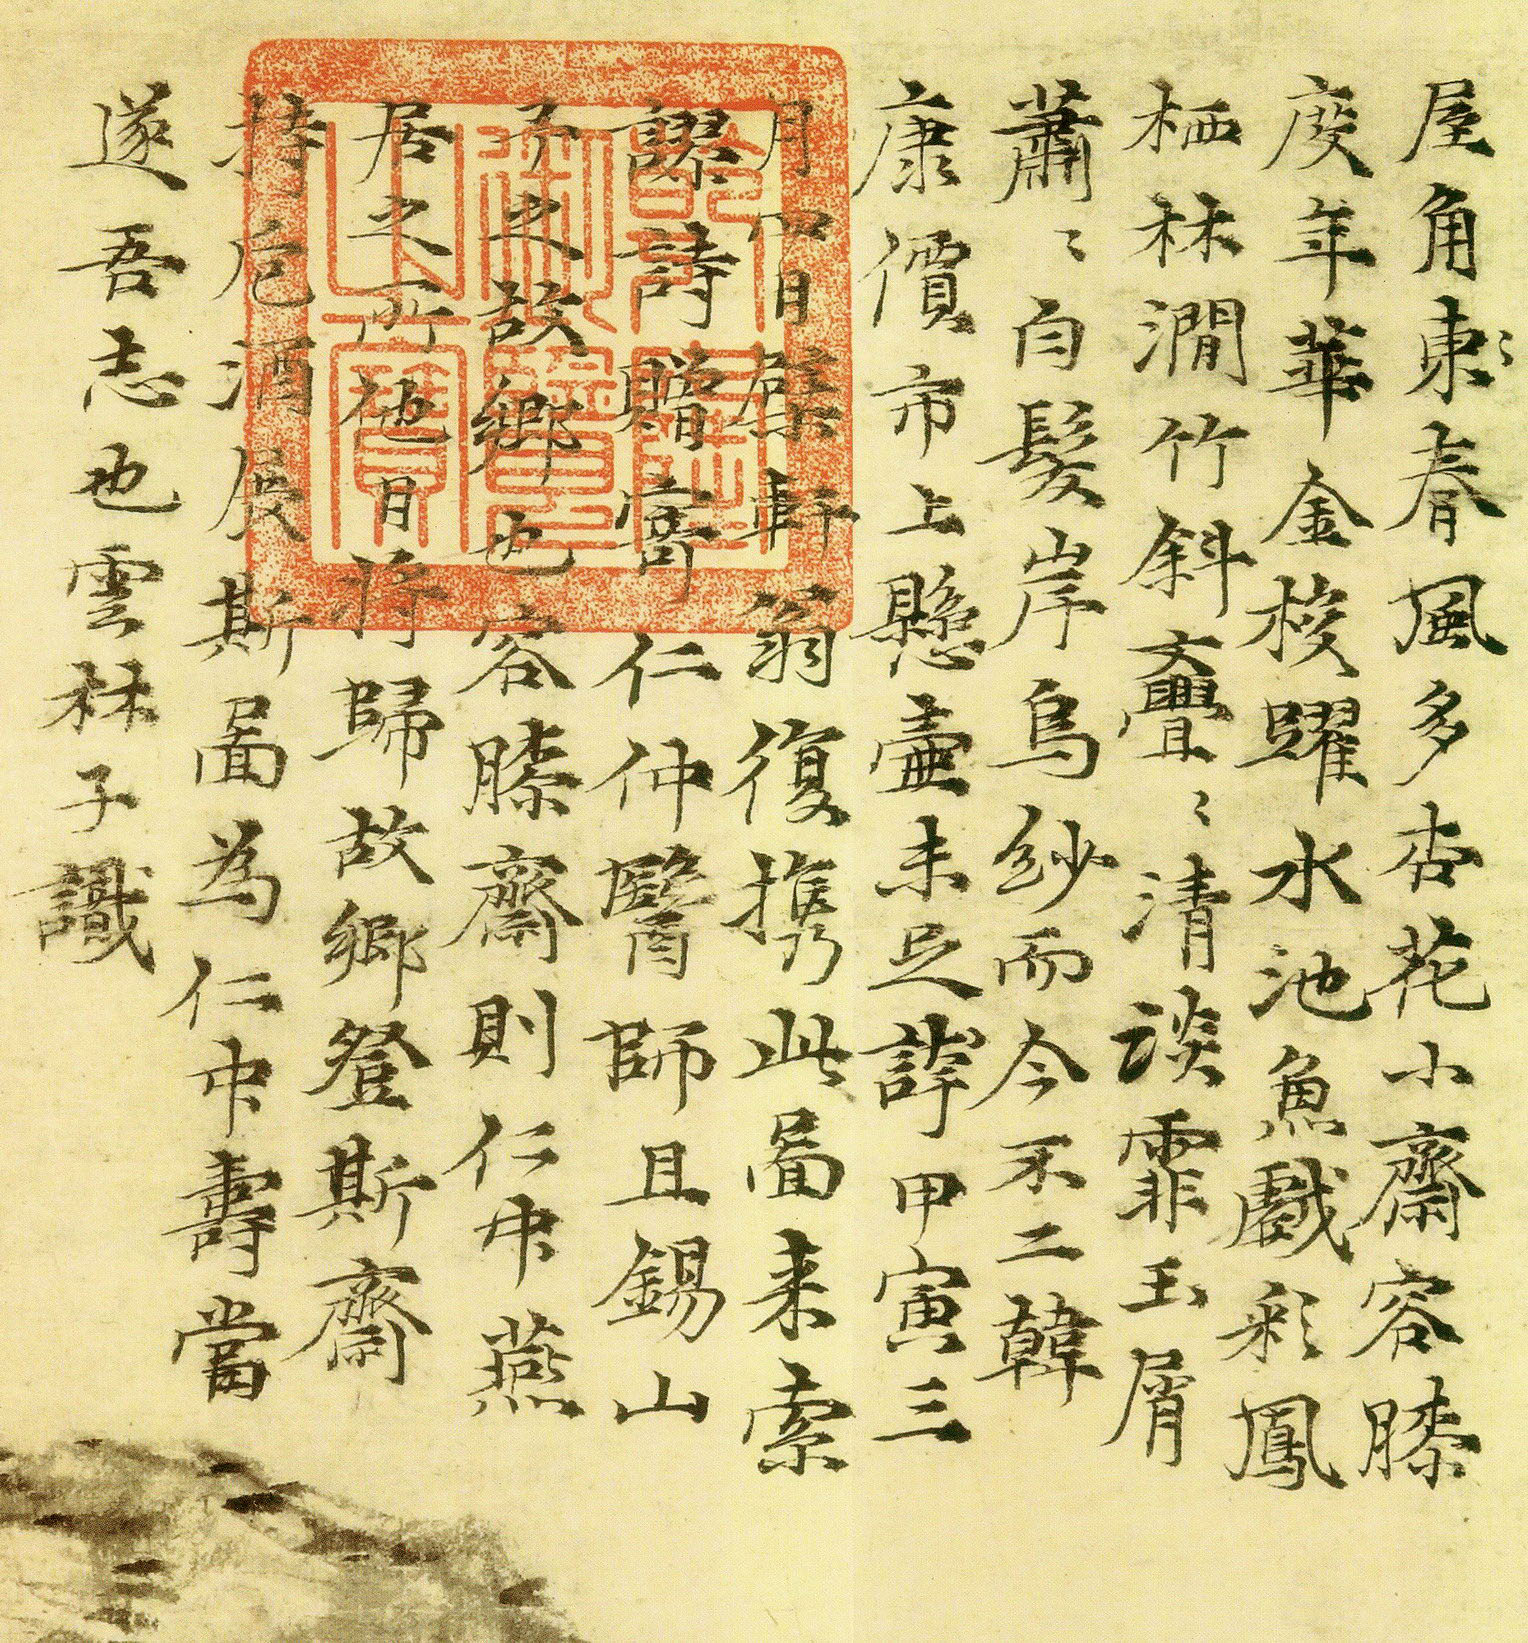 屋角東〻春風多杏花小齋容膝
度年華金梭躍水池魚戲彩鳳
栖林澗竹斜亹〻清談霏玉屑
蕭〻白髮岸烏紗而今不二韓
康價市上懸壺未足誇甲寅三
月四日檗軒翁復携此圖来索
謬詩贈寄仁仲醫師且錫山
予之故鄉也容膝齋則仁中燕
居之所他日將歸故鄉登斯齋
持卮酒展斯圖為仁中壽當
遂吾志也雲林子識
乾隆御覽之寶